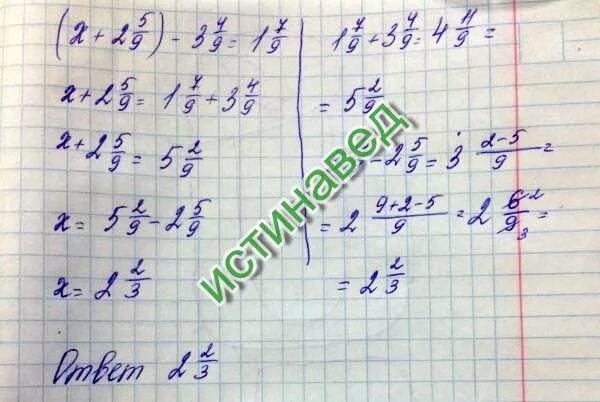 (x + 2 5/9) - 3 4/9 = 1 7/9
x + 2 5/9 = 1 7/9 + 3 4/9
x + 2 5/9 = 5 2/9
x = 5 2/9 - 2 5/9
x = 2 2/3
Ответ 2 2/3
1 7/9 + 3 4/9 = 4 11/9 =
= 5 2/9
- 2 5/9 = 3 (2-5)/9 =
= 2 (9+2-5)/9 = 2 6²/9₃ =
= 2 2/3
истинавед